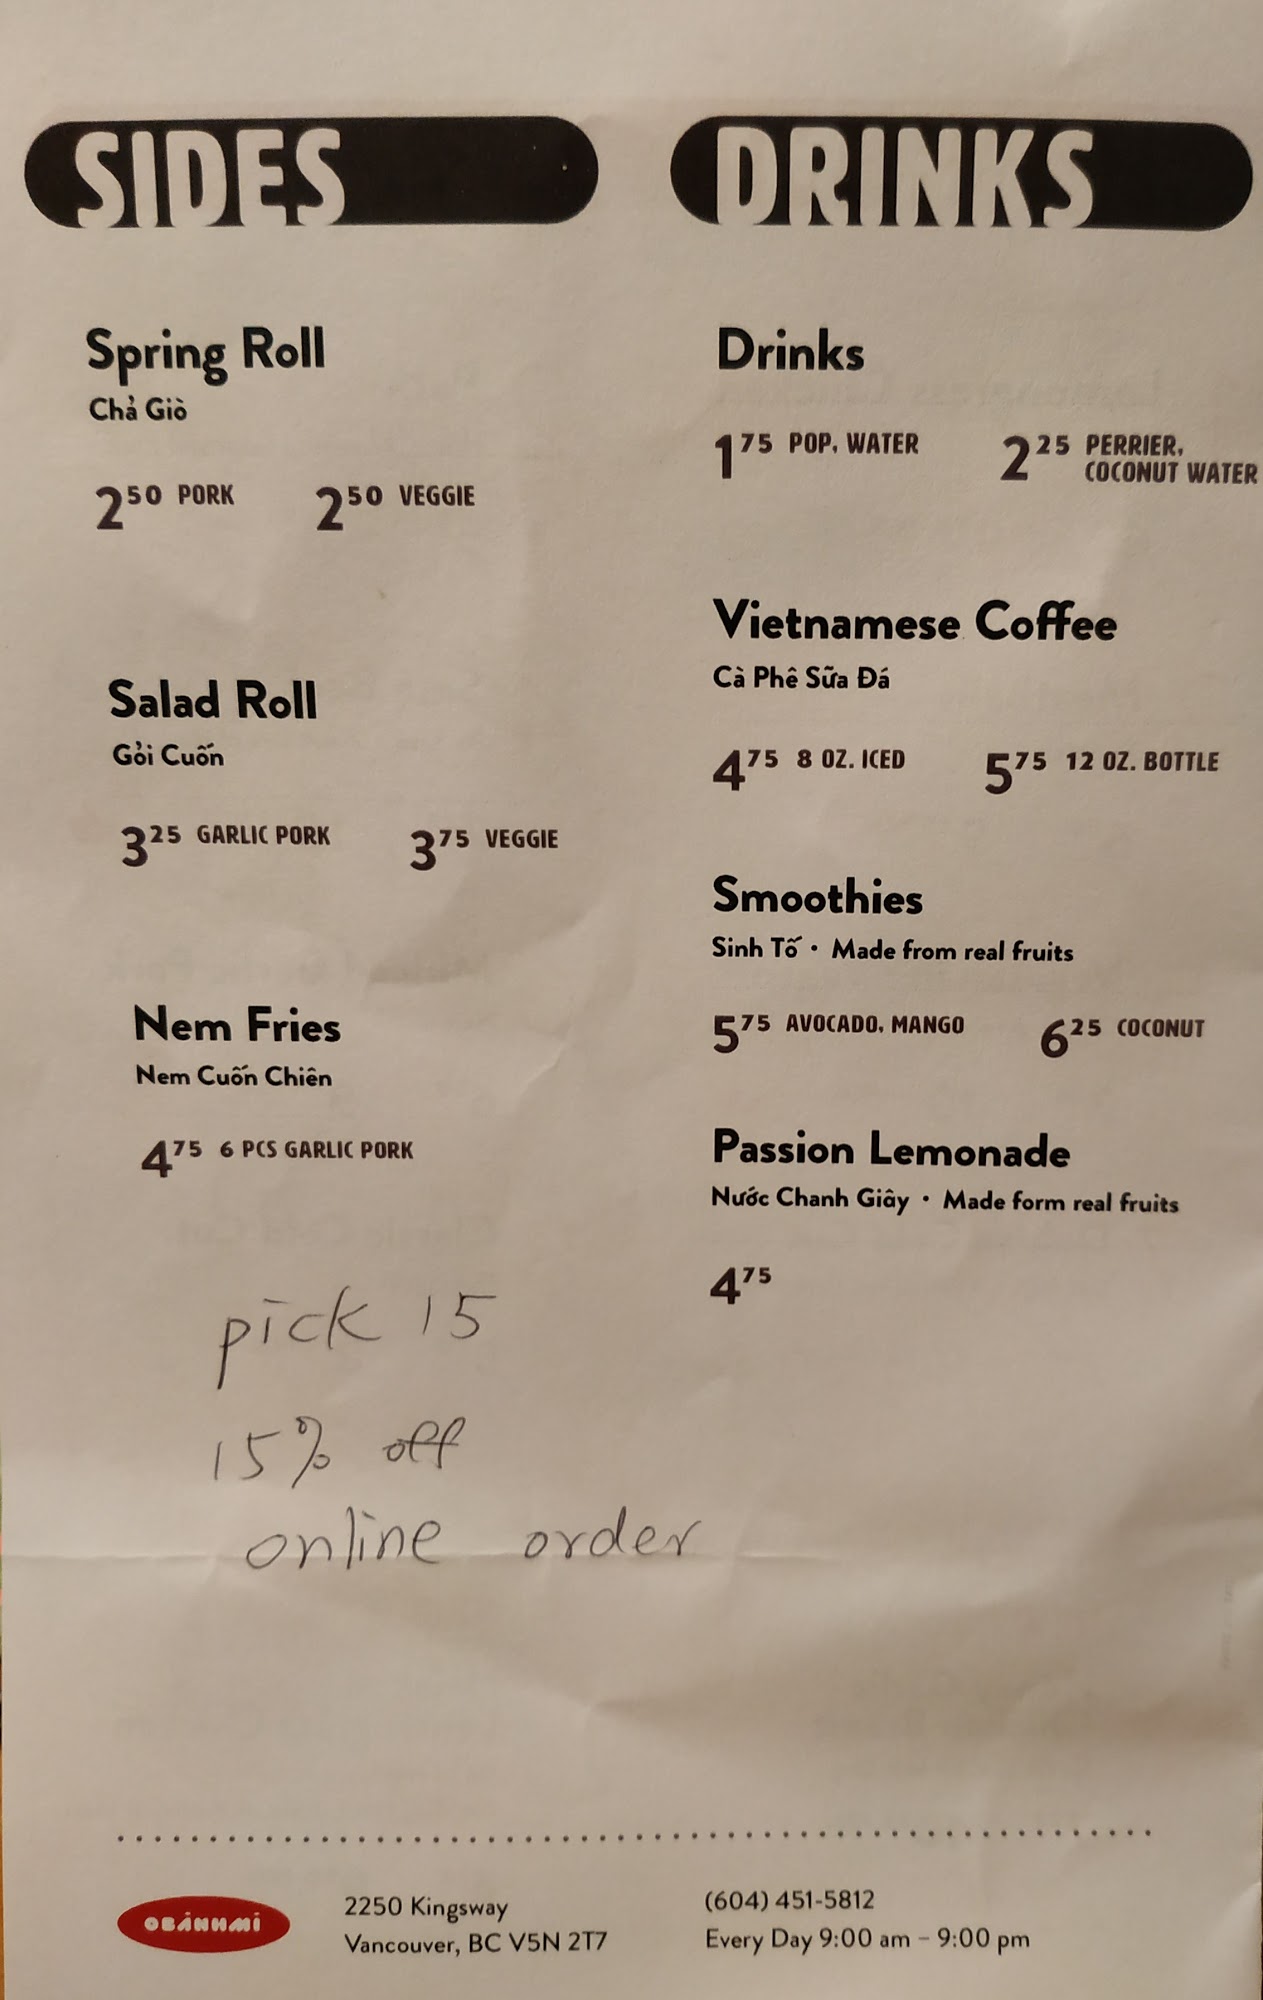 SIDES
Spring Roll
Chả Giò
2⁵⁰ PORK 2⁵⁰ VEGGIE
Salad Roll
Gỏi Cuốn
3²⁵ GARLIC PORK 3⁷⁵ VEGGIE
Nem Fries
Nem Cuốn Chiên
4⁷⁵ 6 PCS GARLIC PORK
pick 15
15% off
online order
DRINKS
Drinks
1⁷⁵ POP, WATER 2²⁵ PERRIER,
COCONUT WATER
Vietnamese Coffee
Cà Phê Sữa Đá
4⁷⁵ 8 OZ. ICED 5⁷⁵ 12 OZ. BOTTLE
Smoothies
Sinh Tố • Made from real fruits
5⁷⁵ AVOCADO, MANGO 6²⁵ COCONUT
Passion Lemonade
Nước Chanh Giây • Made form real fruits
4⁷⁵
OBÁNHMÌ
2250 Kingsway
Vancouver, BC V5N 2T7
(604) 451-5812
Every Day 9:00 am – 9:00 pm